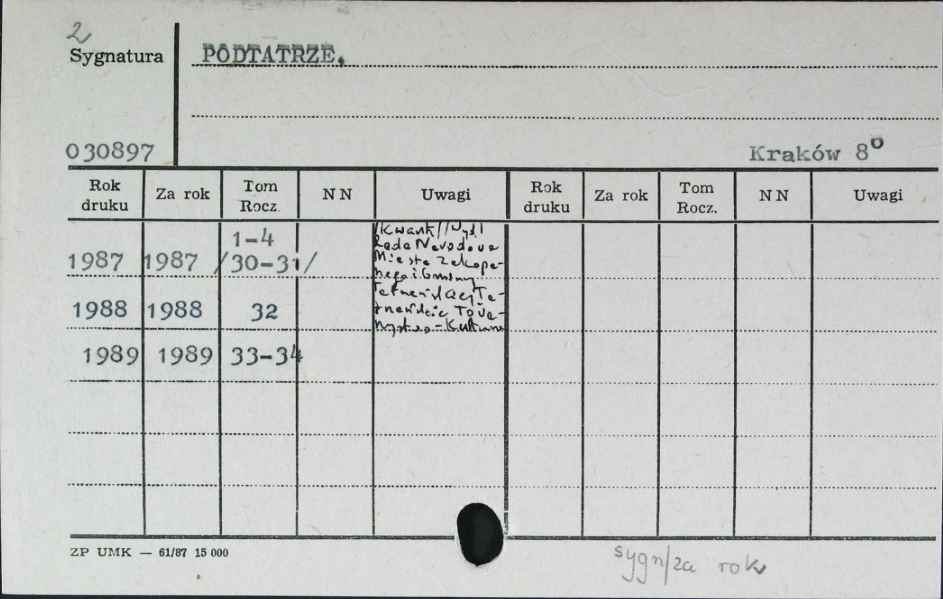 2
Sygnatura
PODTATRZE.
030897
Kraków 8°
Rok druku Za rok Tom Rocz. NN Uwagi Rok druku Za rok Tom Rocz. NN Uwagi
1-4
1987 1987 /30-31/
/Kwart//Wyd/
Rada Narodowa
Miasta Zakopa-
nego i Gminy
1988 1988 32
1989 1989 33-34
ZP UMK — 61/87 15 000
sygn/za rok